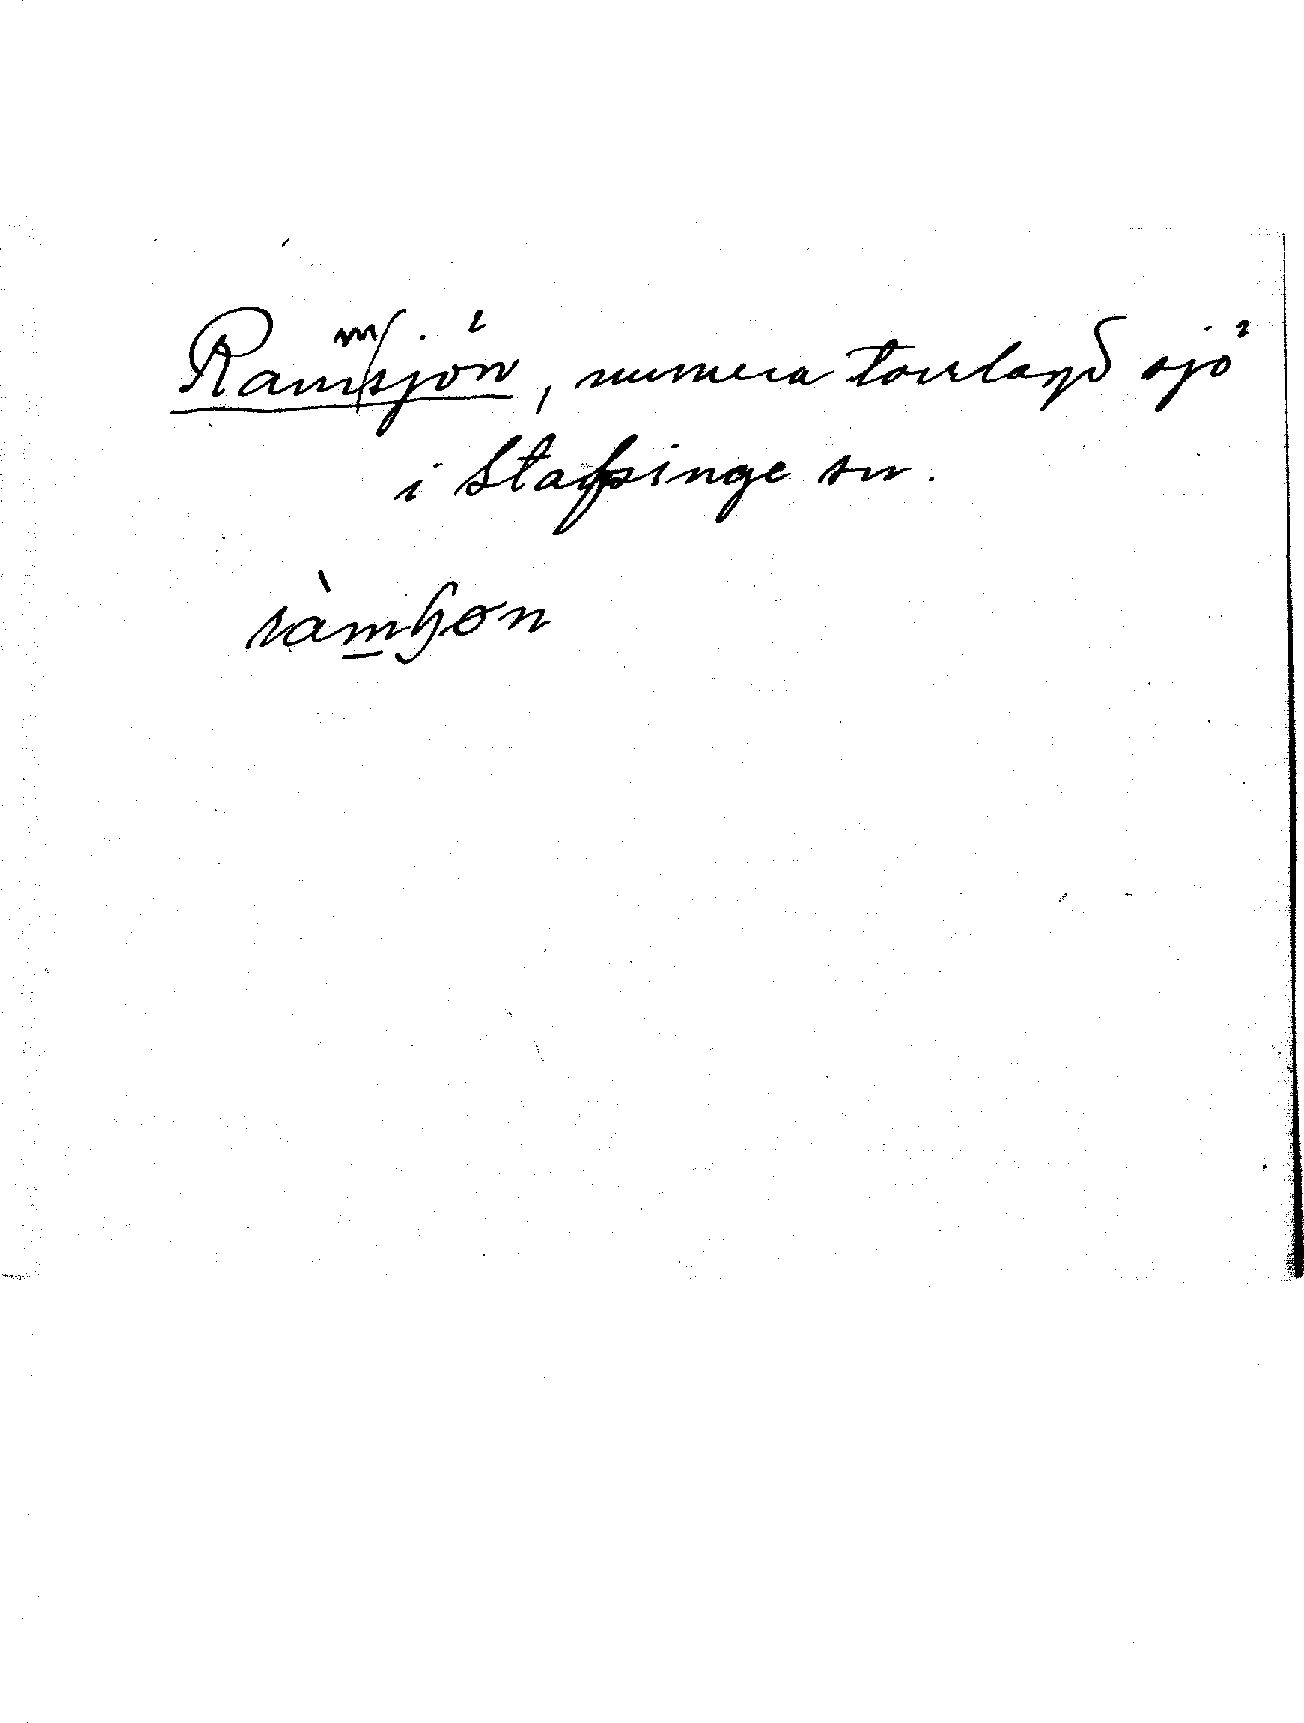 Rammsjön, numera torrlagd sjö
i Stafsinge sn.
ràmɧon